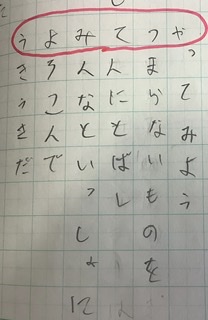 やってみよう
つまらないものを
てんにとばし
みんなといっしょに
よろこんで
うきうきだ